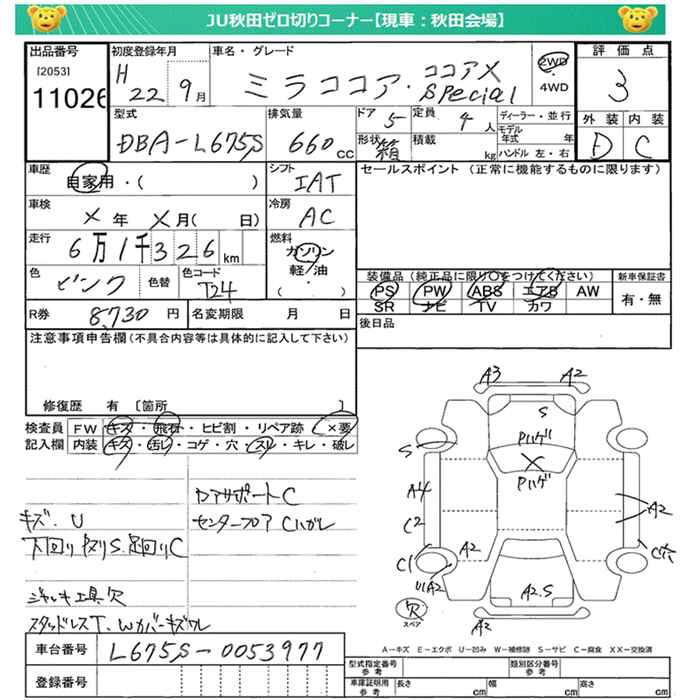 JU秋田ゼロ切りコーナー【現車：秋田会場】
出品番号 初度登録年月 車名・グレード 評価点
[2053]
11026
H 22 9月
ミラココア・ココアX Special
2WD・4WD
3
型式 排気量 ドア 定員 ディーラー・並行
DBA-L675S 660cc 5 4人
モデル年式 年
形状 箱 積載 kg ハンドル 左・右
外装 内装
D C
車歴 シフト セールスポイント（正常に機能するものに限ります）
自家用・（ ） IAT
車検 冷房
X年 X月（ 日） AC
走行 燃料
6万1千326km ガソリン
軽油
（・）
色 色替 色コード
ピンク T24
装備品（純正品に限り○をつけてください） 新車保証書
PS PW ABS エアB AW 有・無
SR ナビ TV カワ
R券 8,730円 名変期限 月 日
後日品
注意事項申告欄（不具合内容等は具体的に記入して下さい）
修復歴 有〔箇所 〕
検査員 FW キズ・飛石・ヒビ割・リペア跡 ×要
記入欄 内装 キズ・汚し・コゲ・穴・スレ・キレ・破レ
コアサポートC
キズ、U センターフロアCハガレ
下回りサビS.足回りC
ジャッキ工具欠
スタッドレスT、Wカバーキズワレ
A3 A2
S
S Pハゲ
Pハゲ
A4
C2 A2
C1 A2 C穴
U1A2
A2.S
欠 スペア
A2
A－キズ E－エクボ U－凹み W－補修跡 S－サビ C－腐食 XX－交換済
車台番号 L675S-0053977
登録番号
型式指定番号 参考 類別区分番号 参考
車庫証明用 参考 長さ cm 幅 cm 高さ cm